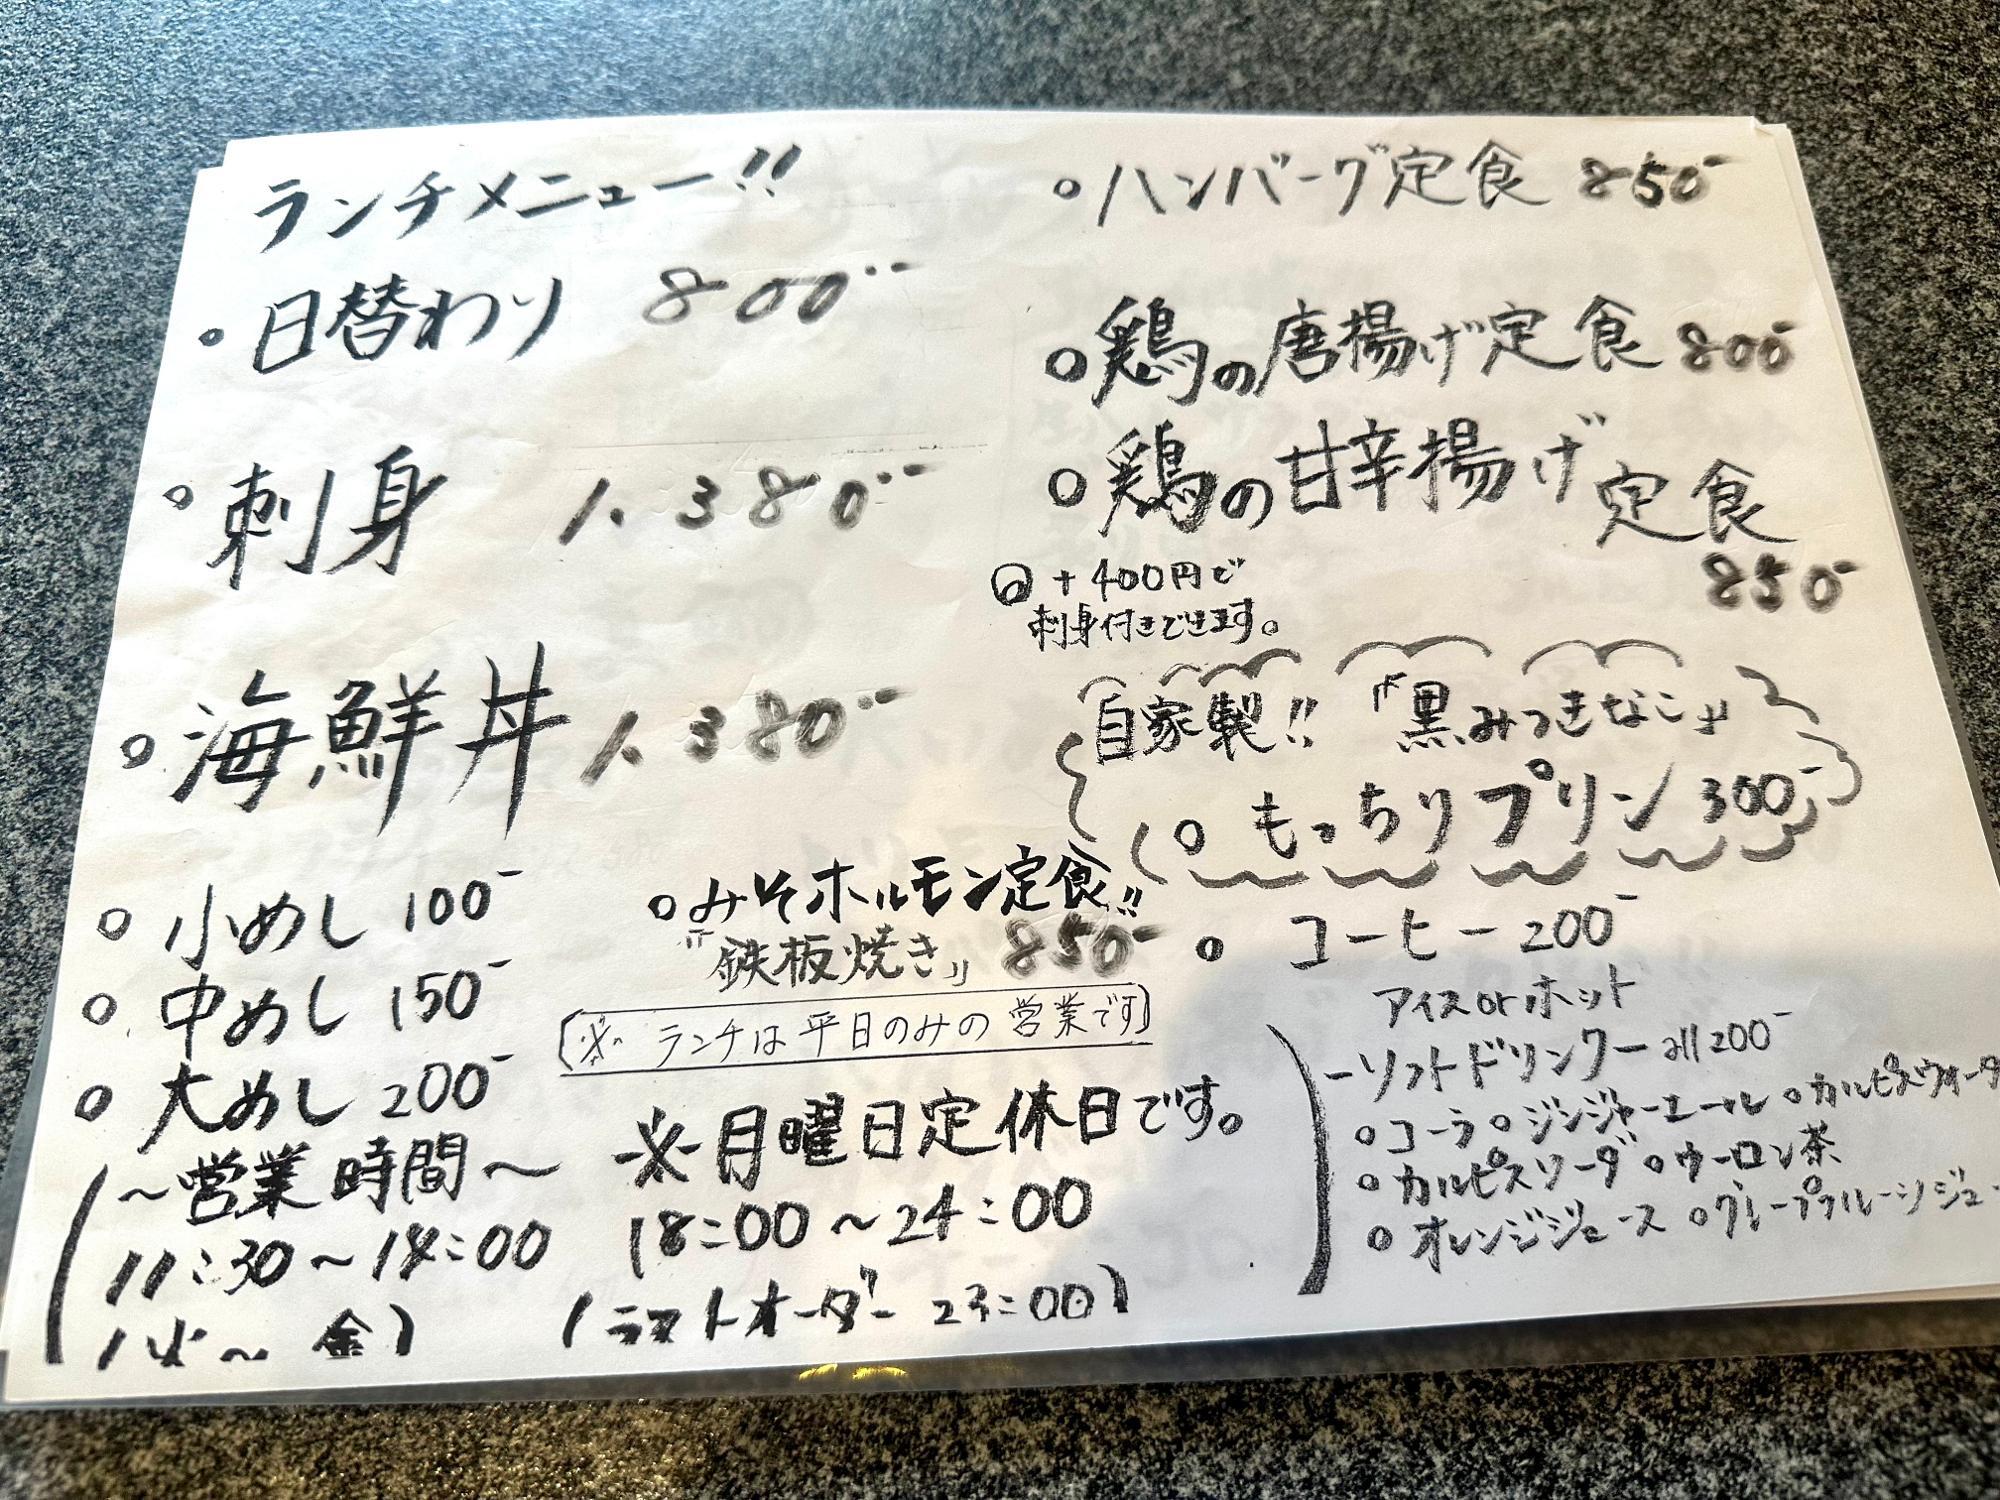 ランチメニュー!!
○日替わり 800-
○刺身 1.380-
○海鮮丼 1.380-
○小めし 100-
○中めし 150-
○大めし 200-
○みそホルモン定食!!
『鉄板焼き』 850-
(※ ランチは平日のみの営業です)
~営業時間~
11:30~14:00
(火~金)
※月曜日定休日です。
18:00~24:00
(ラストオーダー 23:00)
○ハンバーグ定食 850-
○鶏の唐揚げ定食 800-
○鶏の甘辛揚げ定食
850-
+400円で
刺身付きできます。
自家製!!『黒みつきなこ』
○もっちりプリン 300-
○コーヒー 200-
アイスorホット
ーソフトドリンクー all 200-
○コーラ ○ジンジャーエール ○カルピスウォータ
○カルピスソーダ ○ウーロン茶
○オレンジジュース ○グレープフルーツジュー